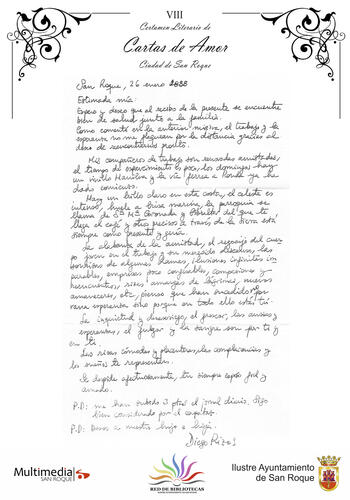 VIII
Certamen Literario de
Cartas de Amor
Ciudad de San Roque
San Roque, 26 enero
Estimada mía:
Espero y deseo que al recibo de la presente se encuentre
bien de salud junto a la familia.
Como comenté en la anterior misiva, el trabajo y la
esperanza no me flaquean por la distancia gracias al
deseo de reencontrarnos pronto.
Mis compañeros de trabajo son sensatas amistades,
el tiempo de esparcimiento es poco, los domingos hay
un vinillo Manilva y la vía férrea a Ronda ya ha
dado comienzo.
Hay un brillo claro en esta costa, el celeste es
intenso, huele a brisa marina, la parroquia se
llama de Sta Mª Coronada y del que te
llega el café y otros precisos a través de la sierra está
siempre como presente y feria.
La alabanza de la amistad, el regocijo del cuer
po joven en el trabajo y su merecido descanso, las
bondades de algunas llamas, ilusiones infinitas in
parables, empresas poco confiables, campeones y
, risas amargas de lágrimas, nuevos
amaneceres, etc, pienso que han anidado mi per
sona esperanza sino porque en todo ello estás tú.
La inquietud y desasosiego, el frescor, las ansias y
esperanzas, el fulgor y la sangre son por ti y
en ti.
Las risas cómodas y placenteras, las complacencias y
los sueños te representan.
Se despide afectuosamente, tu siempre esposo fiel y
amado.
P.D: me han subido 3 ptas el jornal diario. Sigo
bien considerado por el capataz.
P.D: Besos a nuestro hijo e hija.
Diego
Multimedia
SAN ROQUE
RED DE BIBLIOTECAS
Ilustre Ayuntamiento
de San Roque